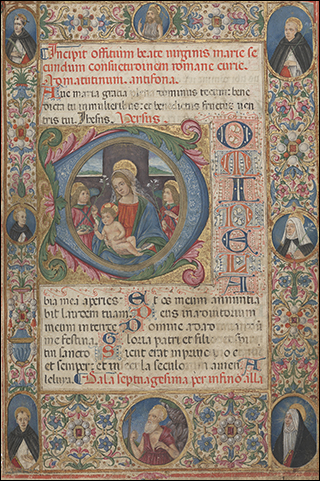 Incipit officium beate virginis marie se
cundum consuetudinem romane curie.
Ad matutinum. antifona.
Aue maria gracia plena dominus tecum: bene
dicta tu in mulieribus: et benedictus fructus uen
tris tui. Ihesus. Versus.
DOMINE LA
bia mea aperies Et os meum annuntia
bit laudem tuam. Deus in adiutorium
meum intende Domine ad
me festina. Gloria patri et filio
tui sancto Sicut erat in principio et
et semper: et in secula seculorum amen. A
leluia. Dala septuagesima per infino alla